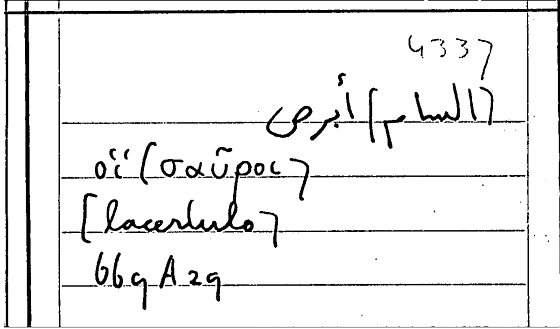 4337
[السام] أبرص
οἱ [σαῦροι]
[lacertulo]
669 A 29